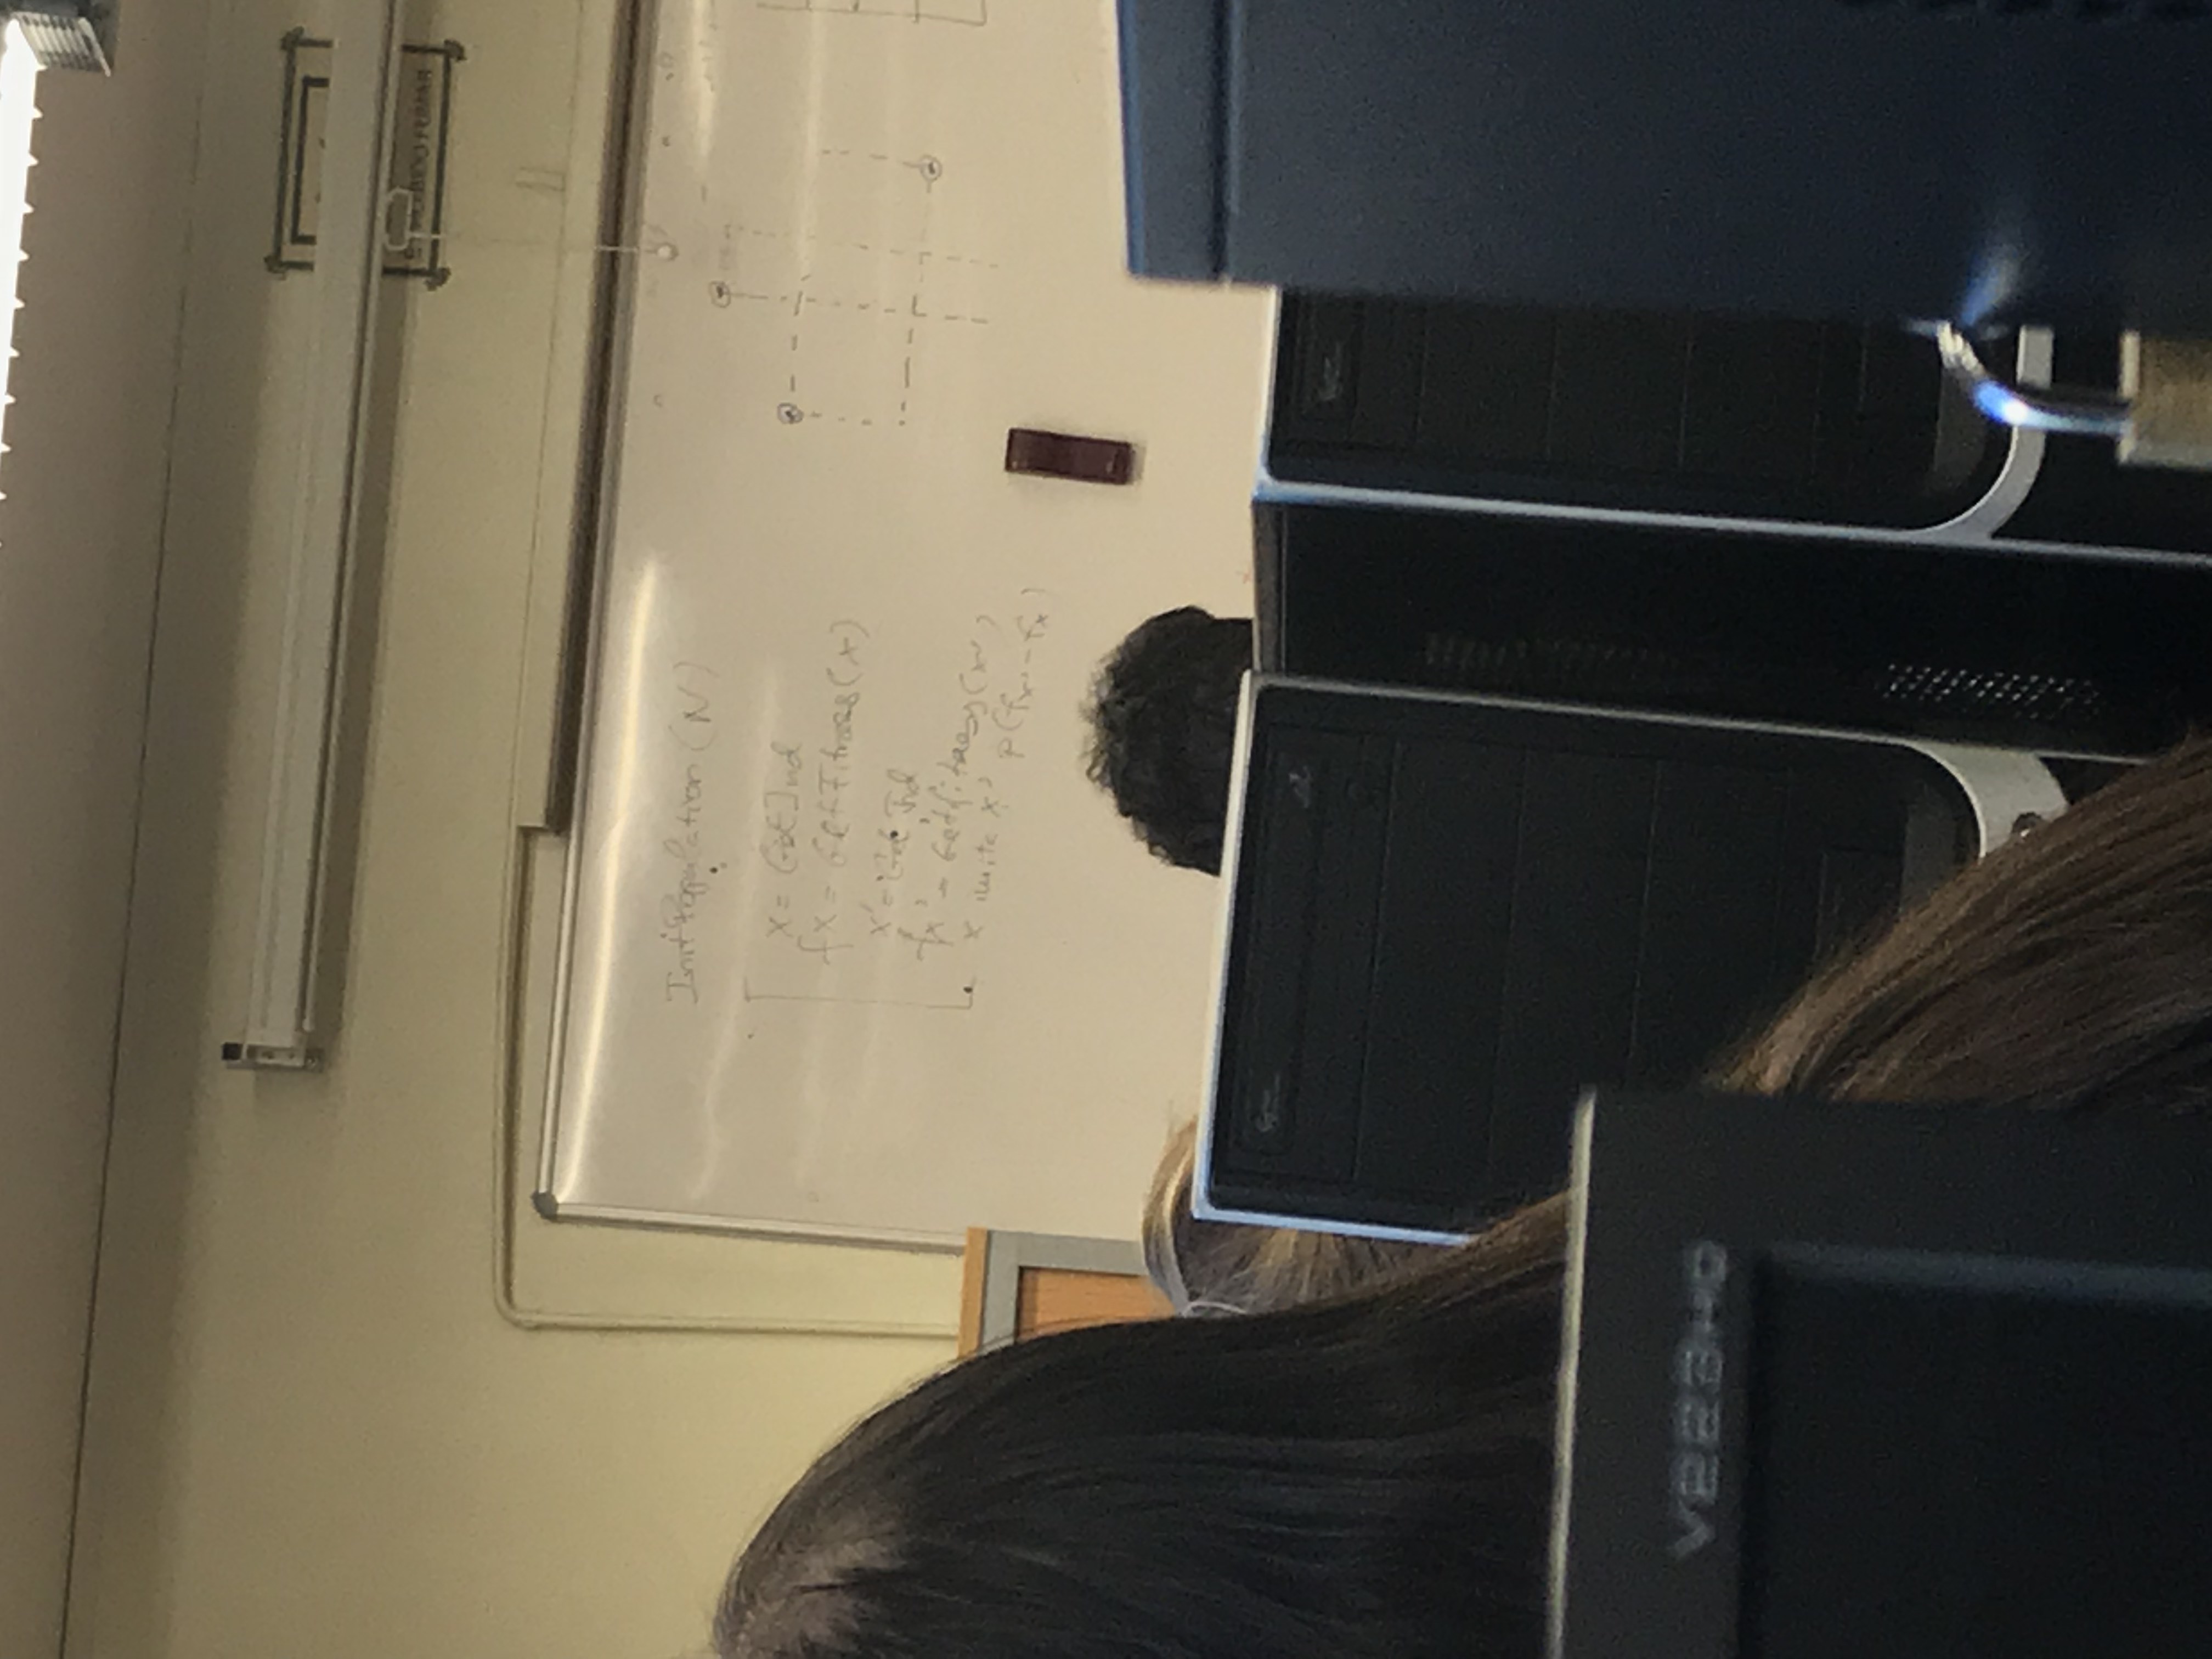 PROHIBIDO FUMAR
InitPopulation (N)
x = GetInd
fx = GetFitness(x)
x' = Get Ind
fx' = Getfitness(x')
x imita x' p(fx' - fx)
V223HQ